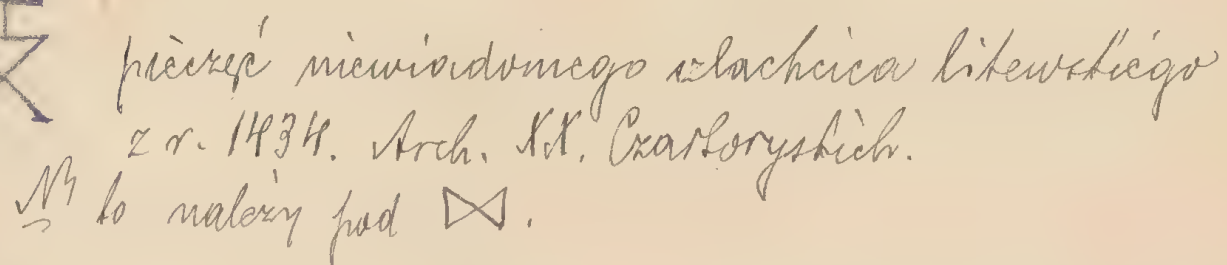 pieczęć niewiadomego szlachcica litewskiego
z r. 1434. Arch. XX. Czartoryskich.
NB to należy pod ⋈.